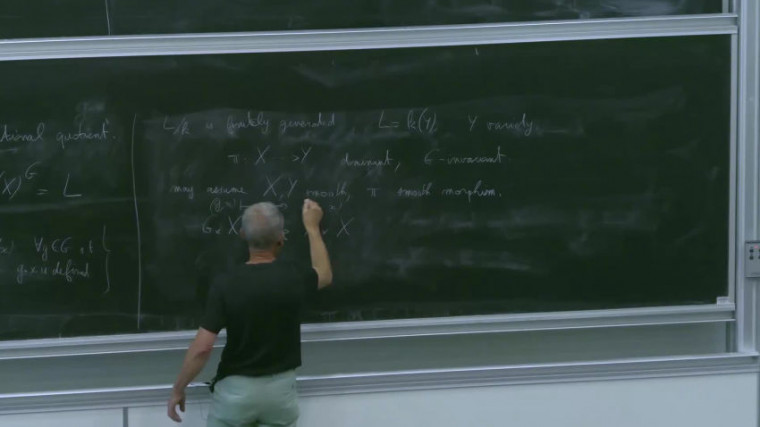 tional quotient.
(X)^G = L
∀g∈G
g·x is defined
L/k is finitely generated L = k(Y), Y variety
π: X ⇢ Y dominant, G-invariant
may assume X, Y smooth, π smooth morphism.
G × X X